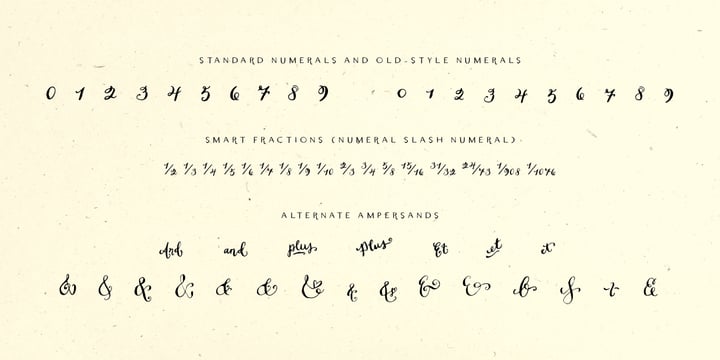 STANDARD NUMERALS AND OLD-STYLE NUMERALS
0 1 2 3 4 5 6 7 8 9 0 1 2 3 4 5 6 7 8 9
SMART FRACTIONS (NUMERAL SLASH NUMERAL)
1/2 1/3 1/4 1/5 1/6 1/7 1/8 1/9 1/10 2/3 3/4 5/8 15/16 31/32 24/43 1/908 1/1076
ALTERNATE AMPERSANDS
And and plus plus Et et
& & & & & & & & & & & & & & &